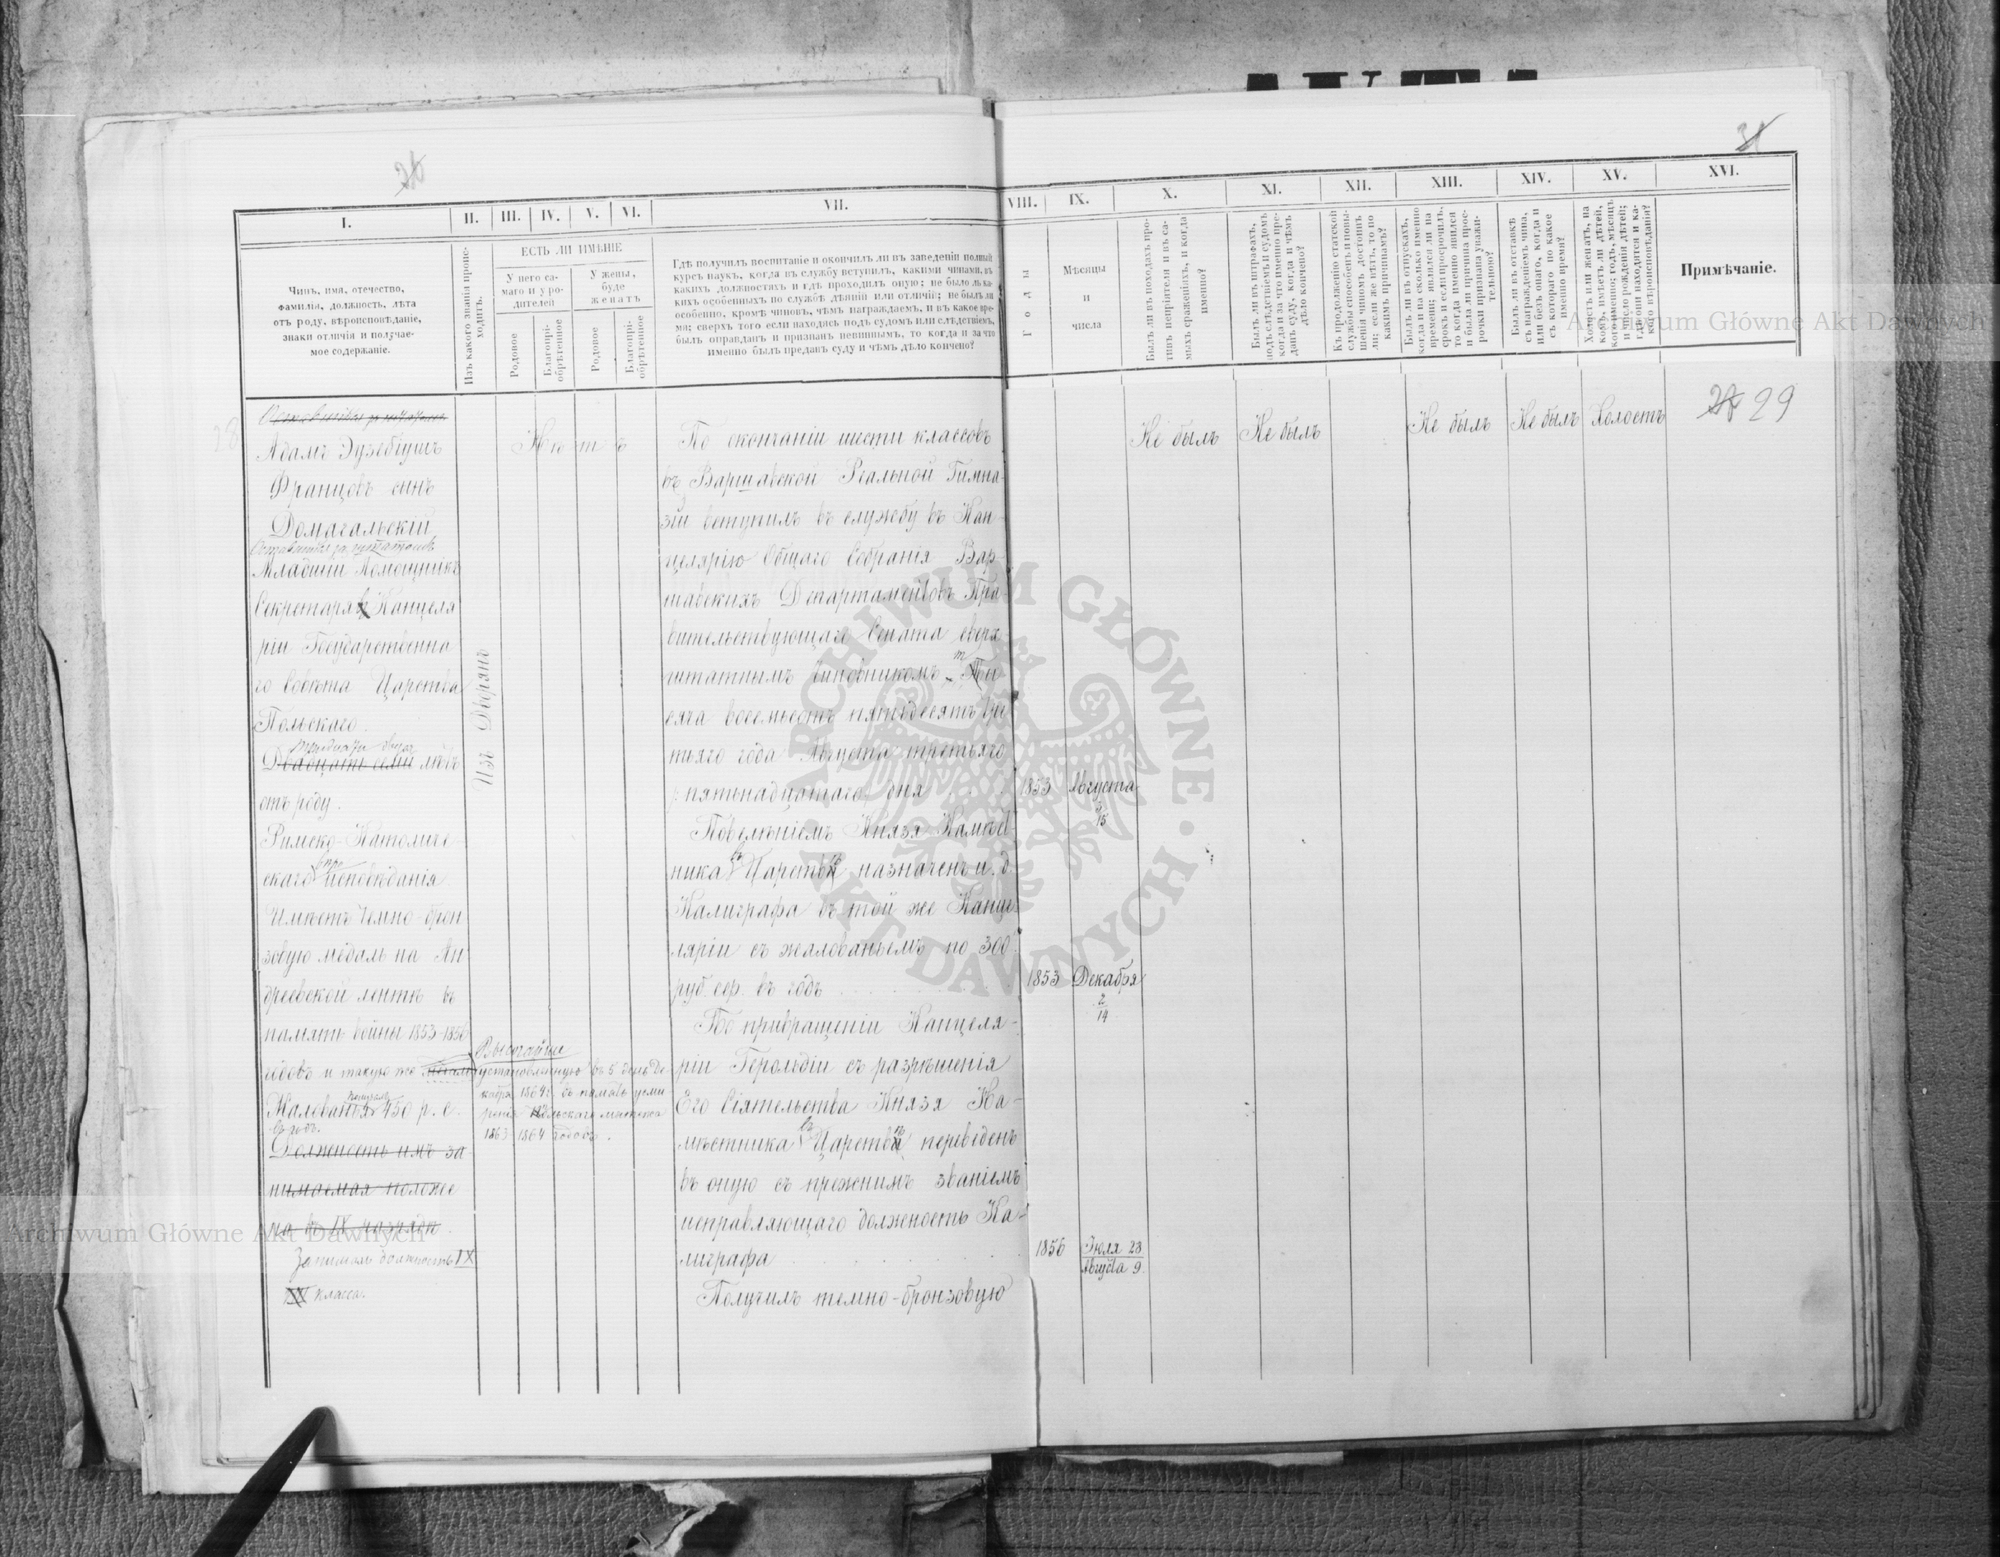 31
I.
II.
III.
IV.
V.
VI.
VII.
VIII.
IX.
X.
XI.
XII.
XIII.
XIV.
XV.
XVI.
Чинъ, имя, отечество,
фамилія, должность, лѣта
отъ роду, вѣроисповѣданіе,
знаки отличія и получае-
мое содержаніе.
Изъ какого званія проис-
ходитъ.
ЕСТЬ ЛИ ИМѢНІЕ
У него са-
маго и у ро-
дителей
У жены,
буде
женатъ
Родовое
Благопрі-
обрѣтенное
Родовое
Благопрі-
обрѣтенное
Гдѣ получилъ воспитаніе и окончилъ ли въ заведеніи полный
курсъ наукъ, когда въ службу вступилъ, какими чинами, въ
какихъ должностяхъ и гдѣ проходилъ оную; не было ли ка-
кихъ особенныхъ по службѣ дѣяній или отличій; не былъ ли
особенно, кромѣ чиновъ, чѣмъ награждаемъ, и въ какое вре-
мя; сверхъ того если находясь подъ судомъ или слѣдствіемъ,
былъ оправданъ и признанъ невиннымъ, то когда и за что
именно былъ преданъ суду и чѣмъ дѣло кончено?
Годы
Мѣсяцы
и
числа
Былъ ли въ походахъ про-
тивъ непріятеля и въ са-
мыхъ сраженіяхъ, и когда
именно?
Былъ ли въ штрафахъ,
подъ слѣдствіемъ и судомъ,
когда и за что именно пре-
данъ суду, когда и чѣмъ
дѣло кончено?
Къ продолженію статской
службы способенъ и повы-
шенія чиномъ достоинъ
ли; если же нѣтъ, то по
какимъ причинамъ?
Былъ ли въ отпускахъ,
когда и на сколько именно
времени; являлся ли на
срокъ и если просрочилъ,
то когда именно явился
и была ли причина прос-
рочки признана уважи-
тельною?
Былъ ли въ отставкѣ
съ награжденіемъ чина,
или безъ онаго, когда и
съ котораго по какое
именно время?
Холостъ или женатъ, на
комъ, имѣетъ ли дѣтей,
кого именно; годъ, мѣсяцъ
и число рожденія дѣтей;
гдѣ они находятся и ка-
кого вѣроисповѣданія?
Примѣчаніе.
28
Адамъ Эузебіушъ
Францовъ сынъ
Домагальскій
Оставшійся за штатомъ
Младшій Помощникъ
Секретаря въ Канцеля
ріи Государственна
го Совѣта Царства
Польскаго.
тридцати двухъ
Двадцать семи лѣтъ
отъ роду.
Римско-Католиче-
скаго вѣроисповѣданія
Имѣетъ темно-брон
зовую медаль на Ан
дреевской лентѣ въ
память войны 1853-1856
годовъ и такую же медаль
Высочайше
установленную въ 5 день де-
кабря 1864 г. въ память усми
ренія Польскаго мятежа
1863-1864 годовъ.
Жалованья получалъ 450 р. с.
въ годъ.
Должность имъ за
нимаемая положе
на въ IX разрядѣ.
Занималъ должность IX
класса.
Изъ Дворянъ
Нѣтъ
По окончаніи шести классовъ
въ Варшавской Реальной Гимна-
зіи вступилъ въ службу въ Кан-
целярію Общаго Собранія Вар-
шавскихъ Департаментовъ Пра-
вительствующаго Сената сверх
штатнымъ чиновникомъ ты
сяча восемьсотъ пятьдесятъ тре
тьяго года Августа третьяго
/:пятьнадцатаго/ дня
1853 Августа
3/15
Повелѣніемъ Князя Намѣст
ника въ Царствѣ назначенъ и. д.
Калиграфа въ той же Канце
ляріи съ жалованьемъ по 300
руб. сер. въ годъ
1853 Декабря
2/14
По превращеніи Канцеля-
ріи Герольдіи съ разрѣшенія
Его Сіятельства Князя На-
мѣстника въ Царствѣ переведенъ
въ оную съ прежнимъ званіемъ
исправляющаго должность Ка-
лиграфа
1856 Іюля 28
Августа 9.
Получилъ темно-бронзовую
Не былъ
Не былъ
Не былъ
Не былъ
Холостъ
29
Archiwum Główne Akt Dawnych
Archiwum Główne Akt Dawnych
ARCHIWUM GŁÓWNE · AKT DAWNYCH ·